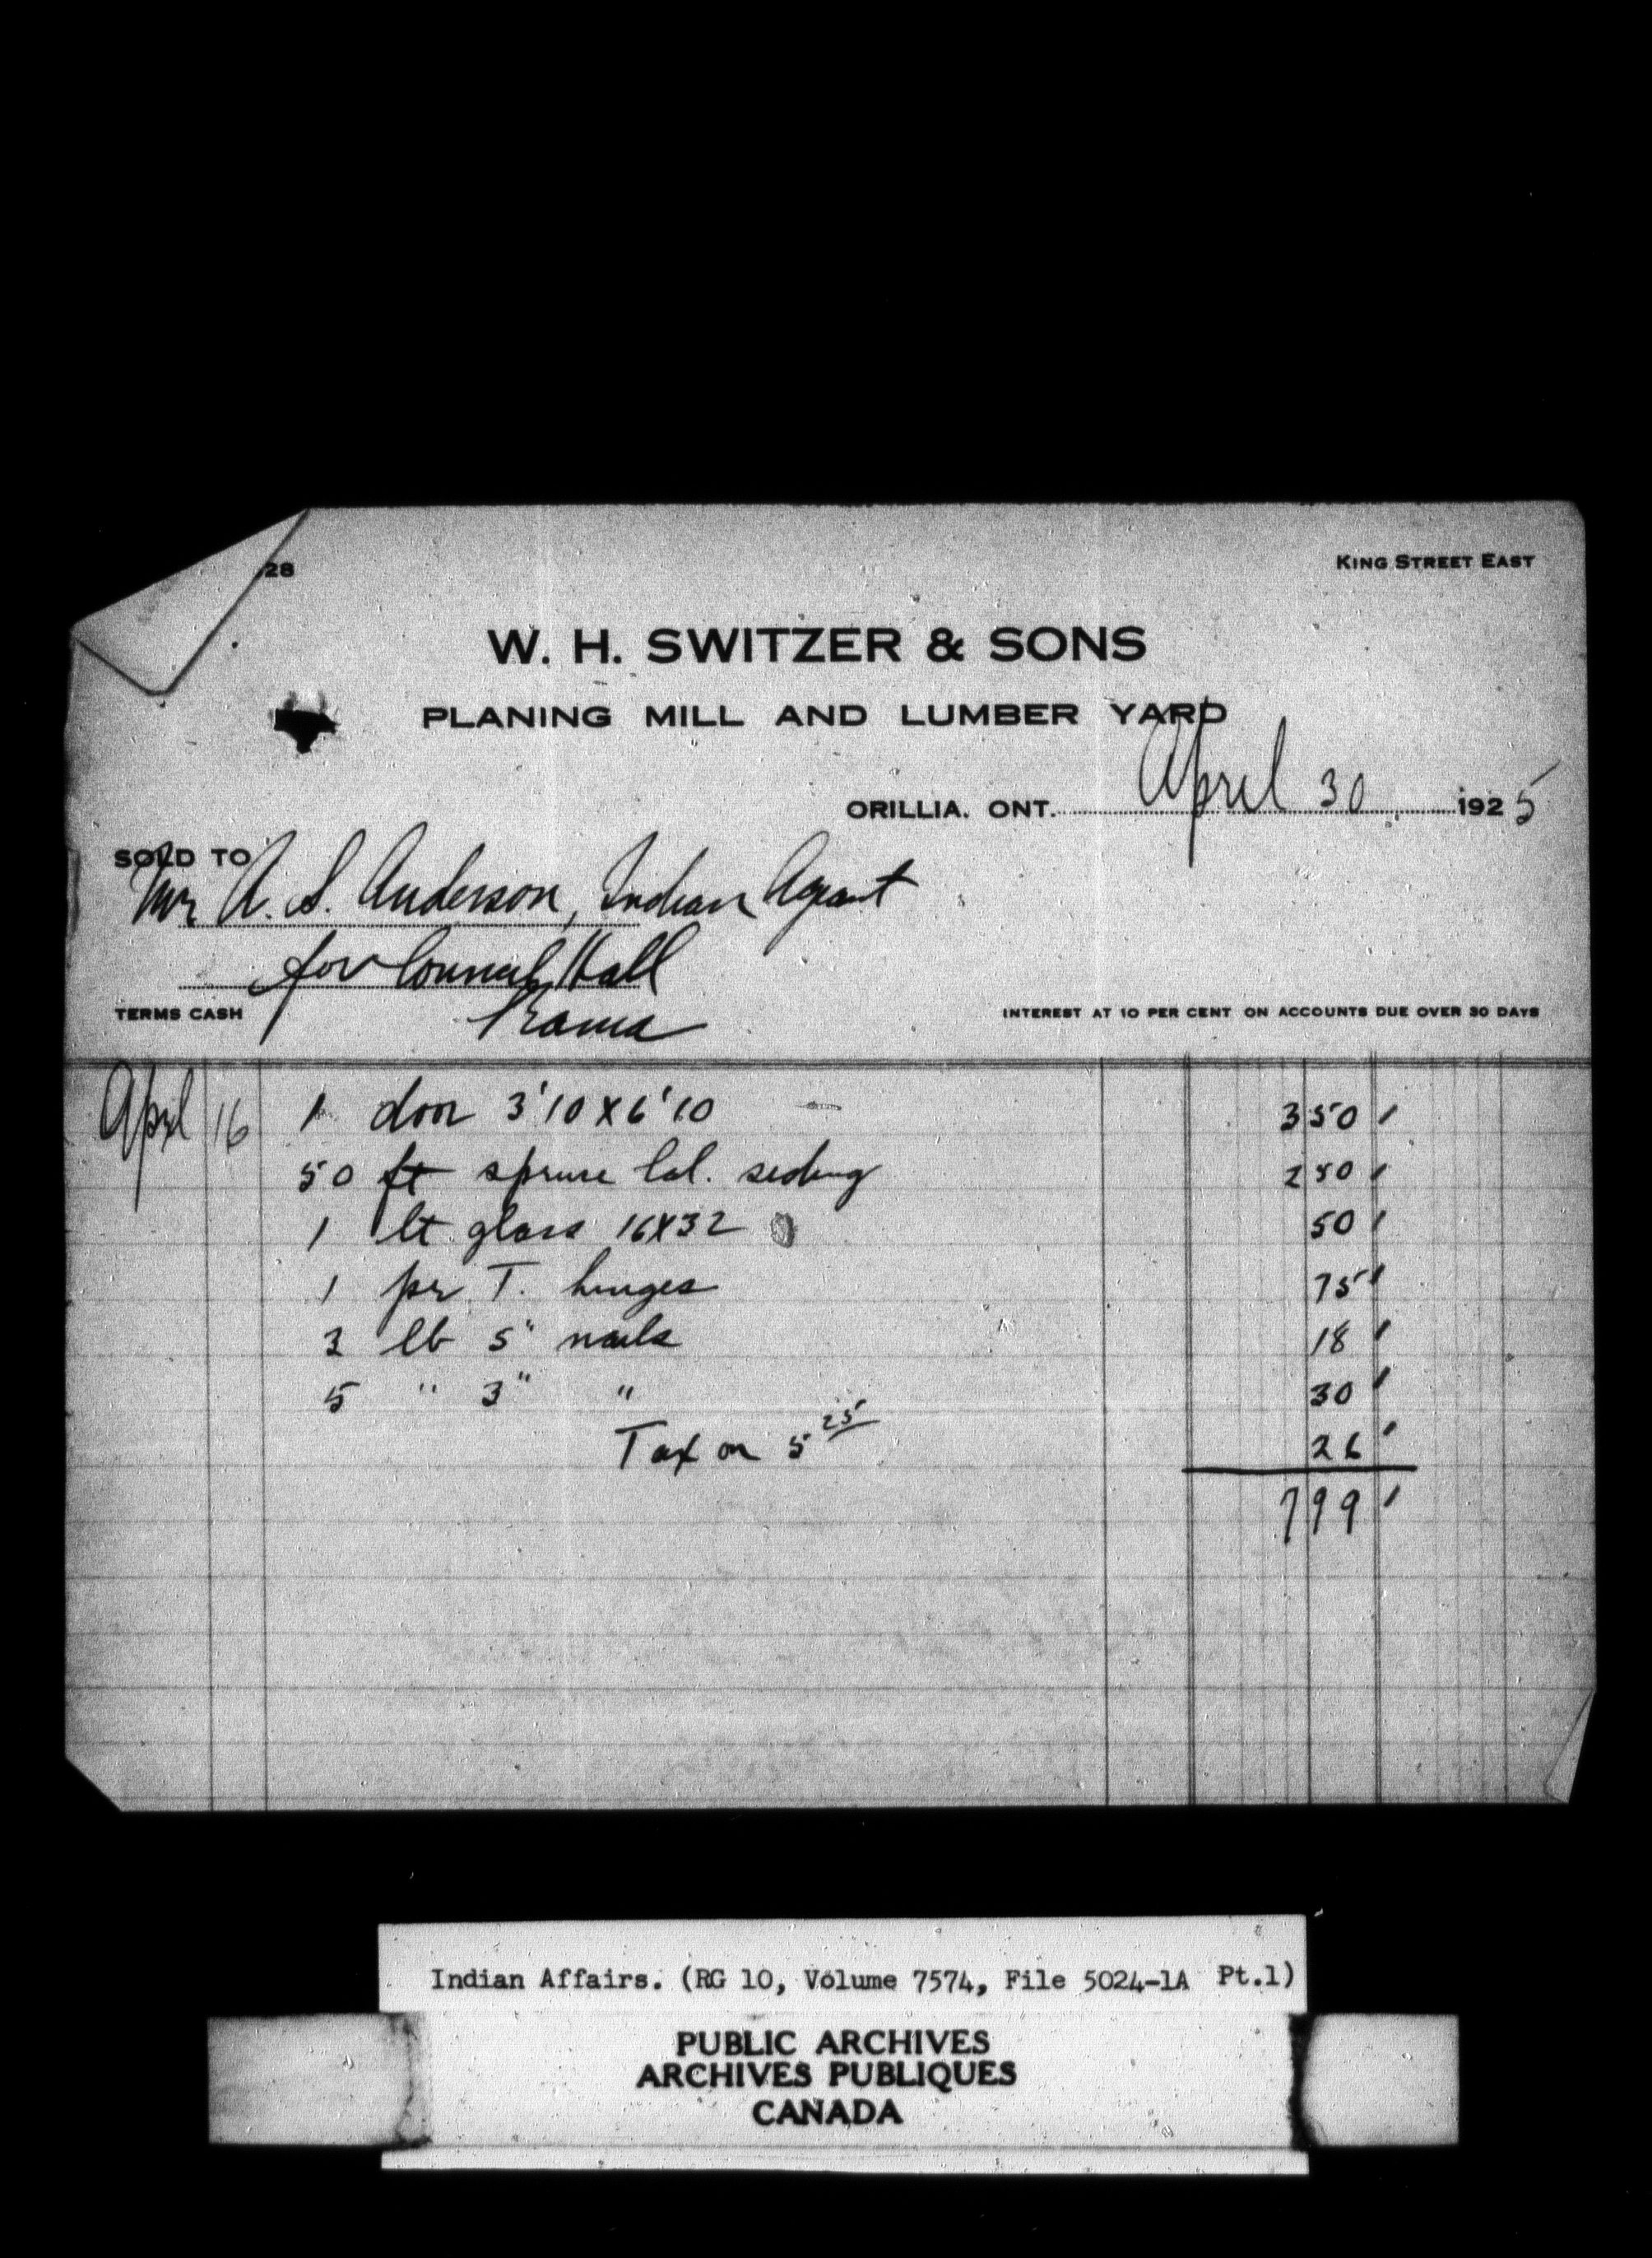 28
KING STREET EAST
W. H. SWITZER & SONS
PLANING MILL AND LUMBER YARD
ORILLIA. ONT. April 30 1925
SOLD TO
Mr A. S. Anderson, Indian Agent
for Council Hall
Rama
TERMS CASH
INTEREST AT 10 PER CENT ON ACCOUNTS DUE OVER 30 DAYS
April 16 1 door 3'10 X 6'10 3 50
50 ft spruce Col. siding 2 50
1 lt glass 16X32 50
1 pr T. hinges 75
3 lb 5" nails 18
5 " 3" " 30
Tax on 5 25 26
7 99
Indian Affairs. (RG 10, Volume 7574, File 5024-1A Pt.1)
PUBLIC ARCHIVES
ARCHIVES PUBLIQUES
CANADA